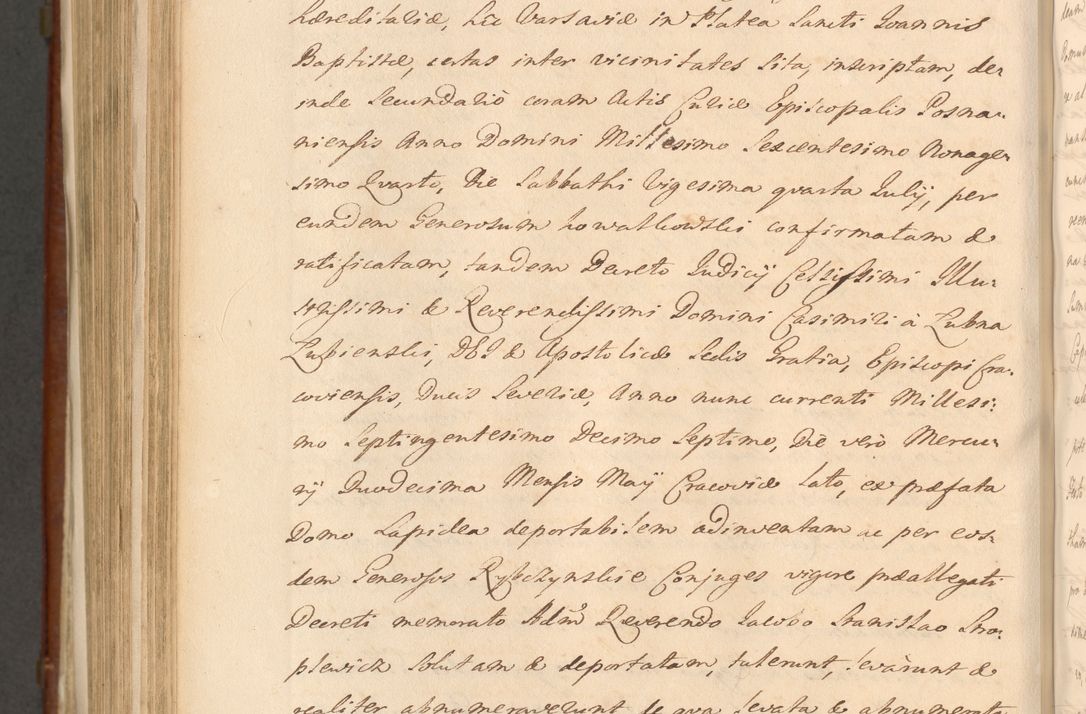 hæreditariæ, hic Varsaviæ in Platea Sancti Ioannis
Baptistæ, certas inter vicinitates sita, inscriptam, de-
inde Secundariò coram Actis Curiæ Episcopalis Posna-
niensis Anno Domini Millesimo Sexcentesimo Nonage-
simo Quarto, Die Sabbathi Vigesima quarta Iulij, per
eundem Generosum Kowalkowski confirmatam &
ratificatam, tandem Decreto Iudicij Celsissimi Illu-
strissimi & Reverendissimi Domini Casimiri à Łubna
Łubienski, DEI & Apostolicæ Sedis Gratia, Episcopi Cra-
coviensis, Ducis Severiæ, Anno nunc currenti Millesi-
mo Septingentesimo Decimo Septimo, Die verò Mercu-
rij Duodecima Mensis Maij Cracoviæ lato, ex præfata
Domo Lapidea deportabilem adinventam ac per eos-
dem Generosos Rybczynskie Conjuges vigore præallegati
Decreti memorato Adm Reverendo Iacobo Stanislao Sro-
plewicz Solutam & deportatam, tulerunt, levârunt &
realiter abnumeraverunt de qua levata & abnumerat